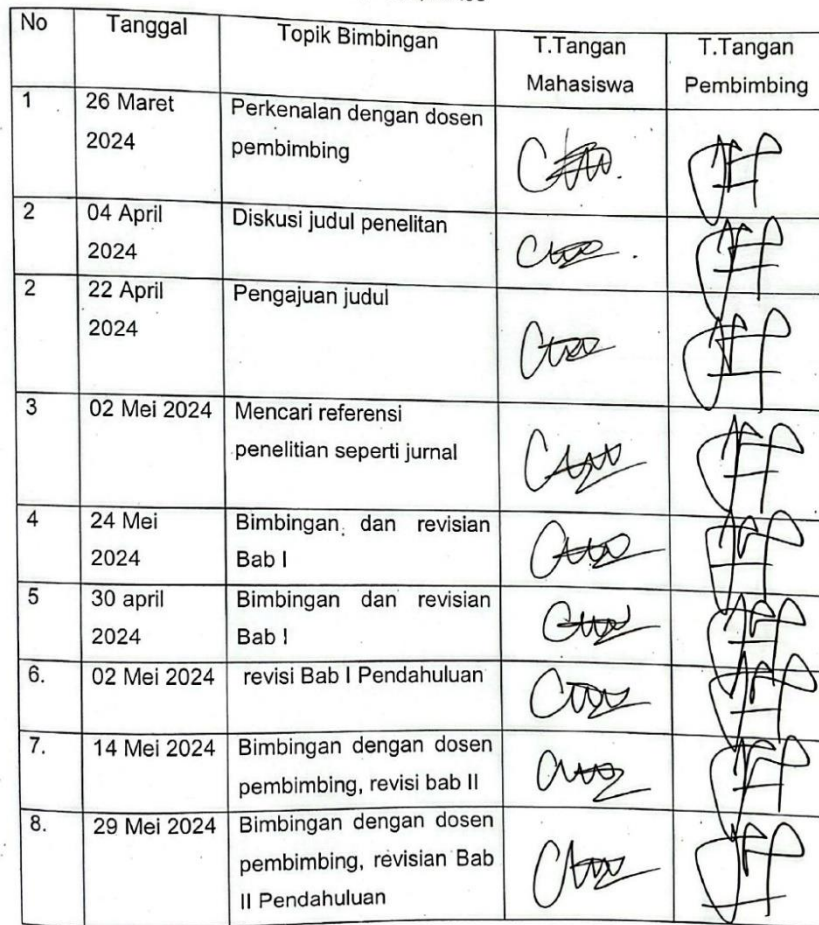 No Tanggal Topik Bimbingan T.Tangan Mahasiswa T.Tangan Pembimbing
1 26 Maret 2024 Perkenalan dengan dosen pembimbing
2 04 April 2024 Diskusi judul penelitan
2 22 April 2024 Pengajuan judul
3 02 Mei 2024 Mencari referensi penelitian seperti jurnal
4 24 Mei 2024 Bimbingan dan revisian Bab I
5 30 april 2024 Bimbingan dan revisian Bab I
6. 02 Mei 2024 revisi Bab I Pendahuluan
7. 14 Mei 2024 Bimbingan dengan dosen pembimbing, revisi bab II
8. 29 Mei 2024 Bimbingan dengan dosen pembimbing, revisian Bab II Pendahuluan